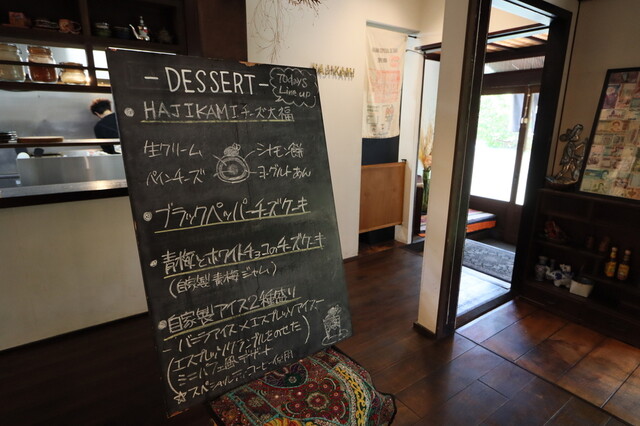 - DESSERT -
TODAY'S
Line up
HAJIKAMIチーズ大福
生クリーム
シナモン餅
ペインチーズ
ヨーグルトあん
ブラックペッパーチーズケーキ
青梅とホワイトチョコのチーズケーキ
(自家製青梅ジャム)
自家製アイス2種盛り
- バニラアイス×エスプレッソアイス -
(エスプレッソワッフルをのせた)
(ミニパフェ風デザート)
☆スペシャルティコーヒー使用